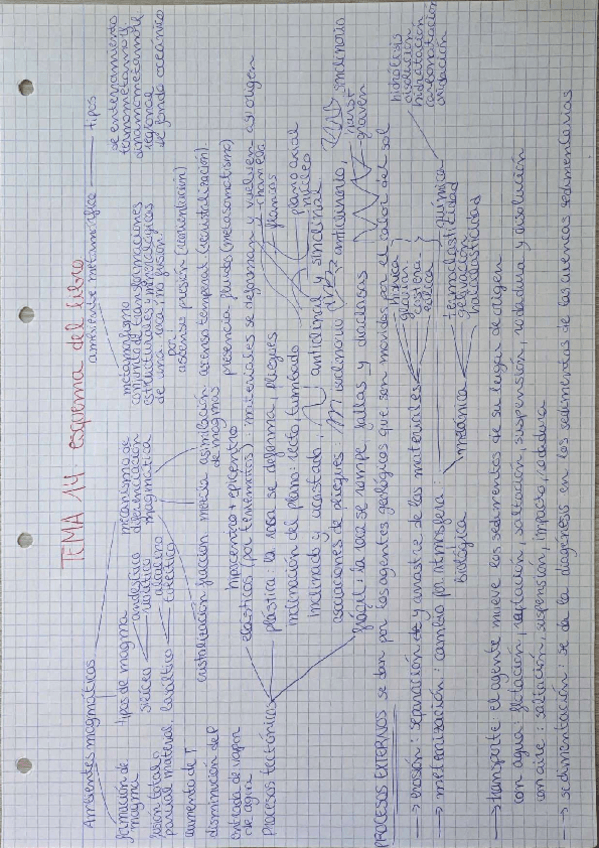 TEMA 14 esquema del libro
Ambientes magmáticos
formación de magma
fusión total o parcial de material.
aumento de T
disminución de P
entrada de vapor de agua
tipos de magma
silíceo
andesítico
riolítico
basáltico
alcalino
toleítico
mecanismos de diferenciación magmática
cristalización fraccionada
mezcla
asimilación de magmas
ambiente metamórfico
metamorfismo
conjunto de transformaciones
estructurales y mineralógicas
de una roca (no fusión)
por
ascenso presión (cementación)
ascenso temperat. (recristalización)
presencia fluidos (metasomatismo)
tipos
de enterramiento
termometamorf.
dinamometamorf.
regional
de fondo oceánico
Procesos tectónicos
hipocentro + epicentro
elásticos (por terremotos): materiales se deforman y vuelven a su origen
plástica: la roca se deforma, pliegues
charnela
flancos
plano axial
núcleo
inclinación del plano: recto, tumbado
inclinado y acostado, anticlinal y sinclinal
asociaciones de pliegues: isoclinorio anticlinorio, sinclinorio
frágil: la roca se rompe fallas y diaclasas
horst
graven
PROCESOS EXTERNOS se dan por los agentes geológicos que son movidos por el calor del sol
→ erosión: separación de y arrastre de los materiales
hídrica
glaciar
costera
eólica
→ meteorización: cambio por atmósfera:
biológica
mecánica
termoclasticidad
gelivación
haloclasticidad
química
hidrólisis
disolución
hidratación
carbonatación
oxidación
→ transporte: el agente mueve los sedimentos de su lugar de origen
con agua: flotación, reptación, saltación, suspensión, rodadura y disolución
con aire: saltación, suspensión, impacto, rodadura
→ sedimentación: se da la diagénesis en los sedimentos de las cuencas sedimentarias